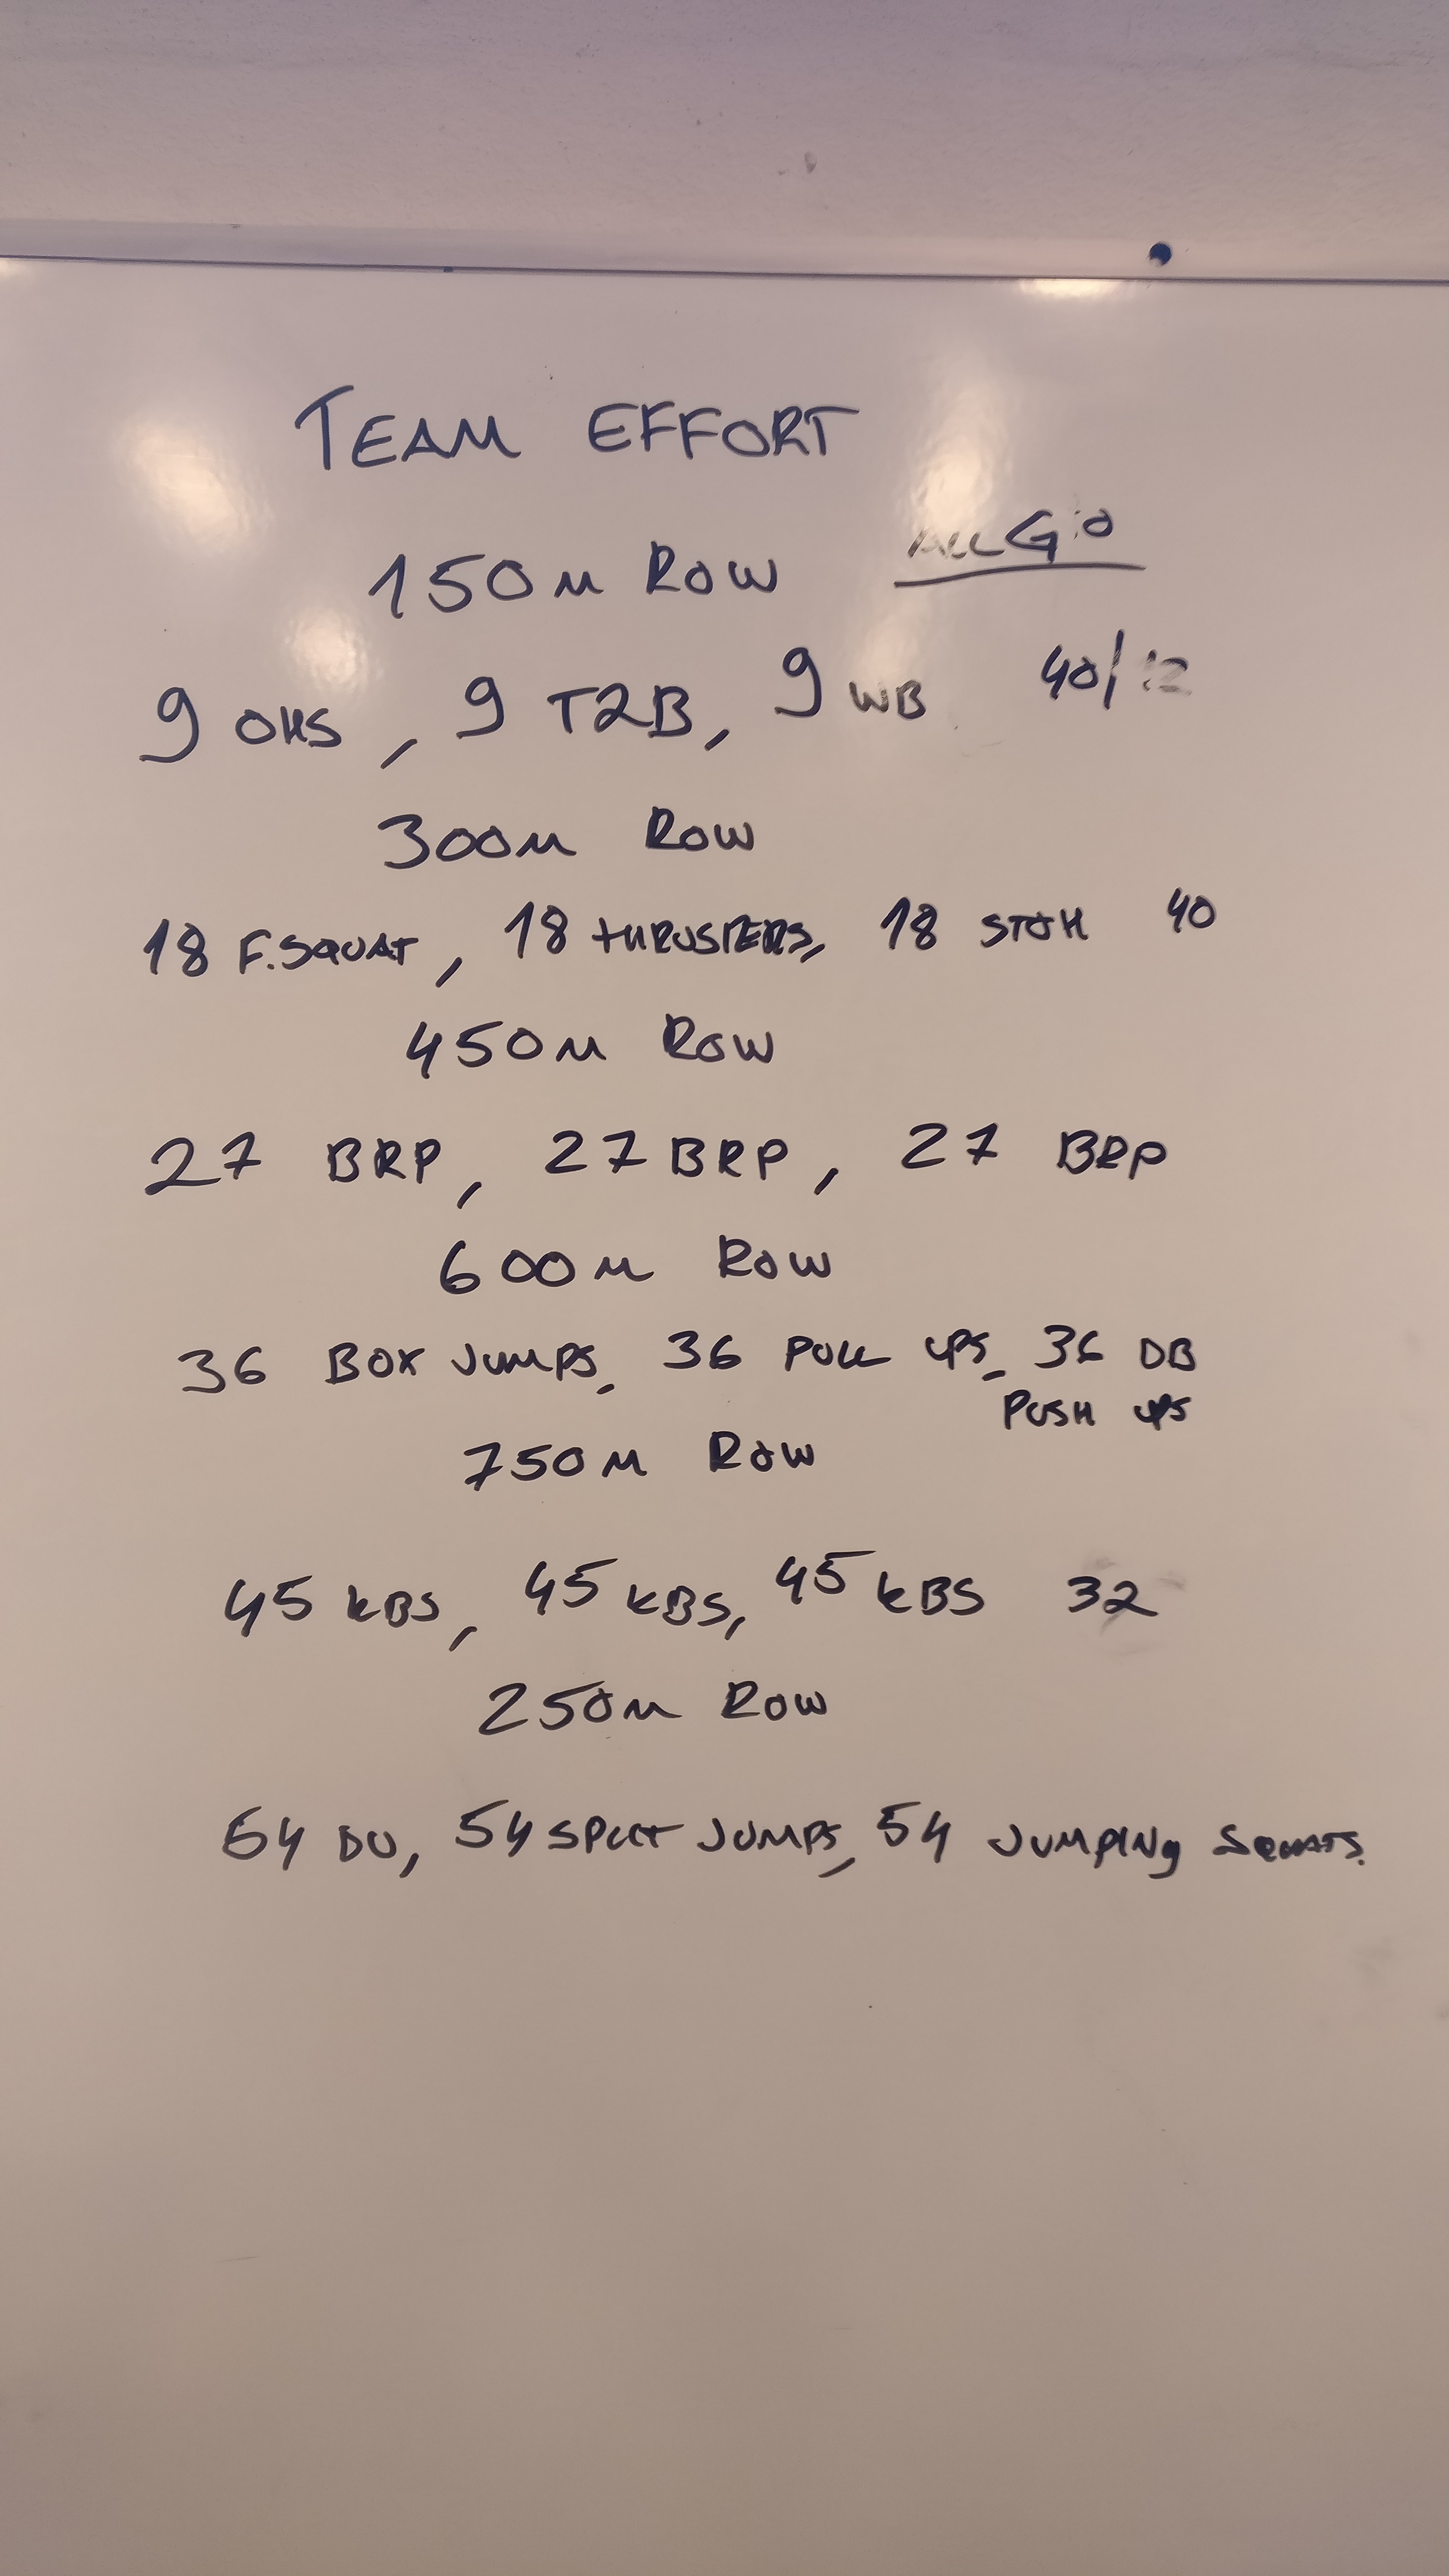 TEAM EFFORT
150M ROW ALL GO
9 OHS, 9 T2B, 9 WB 40/12
300M ROW
18 F.SQUAT, 18 THRUSTERS, 18 STOH 40
450M ROW
27 BRP, 27 BRP, 27 BRP
600M ROW
36 BOX JUMPS, 36 PULL UPS, 36 DB
PUSH UPS
750M ROW
45 KBS, 45 KBS, 45 KBS 32
250M ROW
54 DU, 54 SPLIT JUMPS, 54 JUMPING SQUATS.